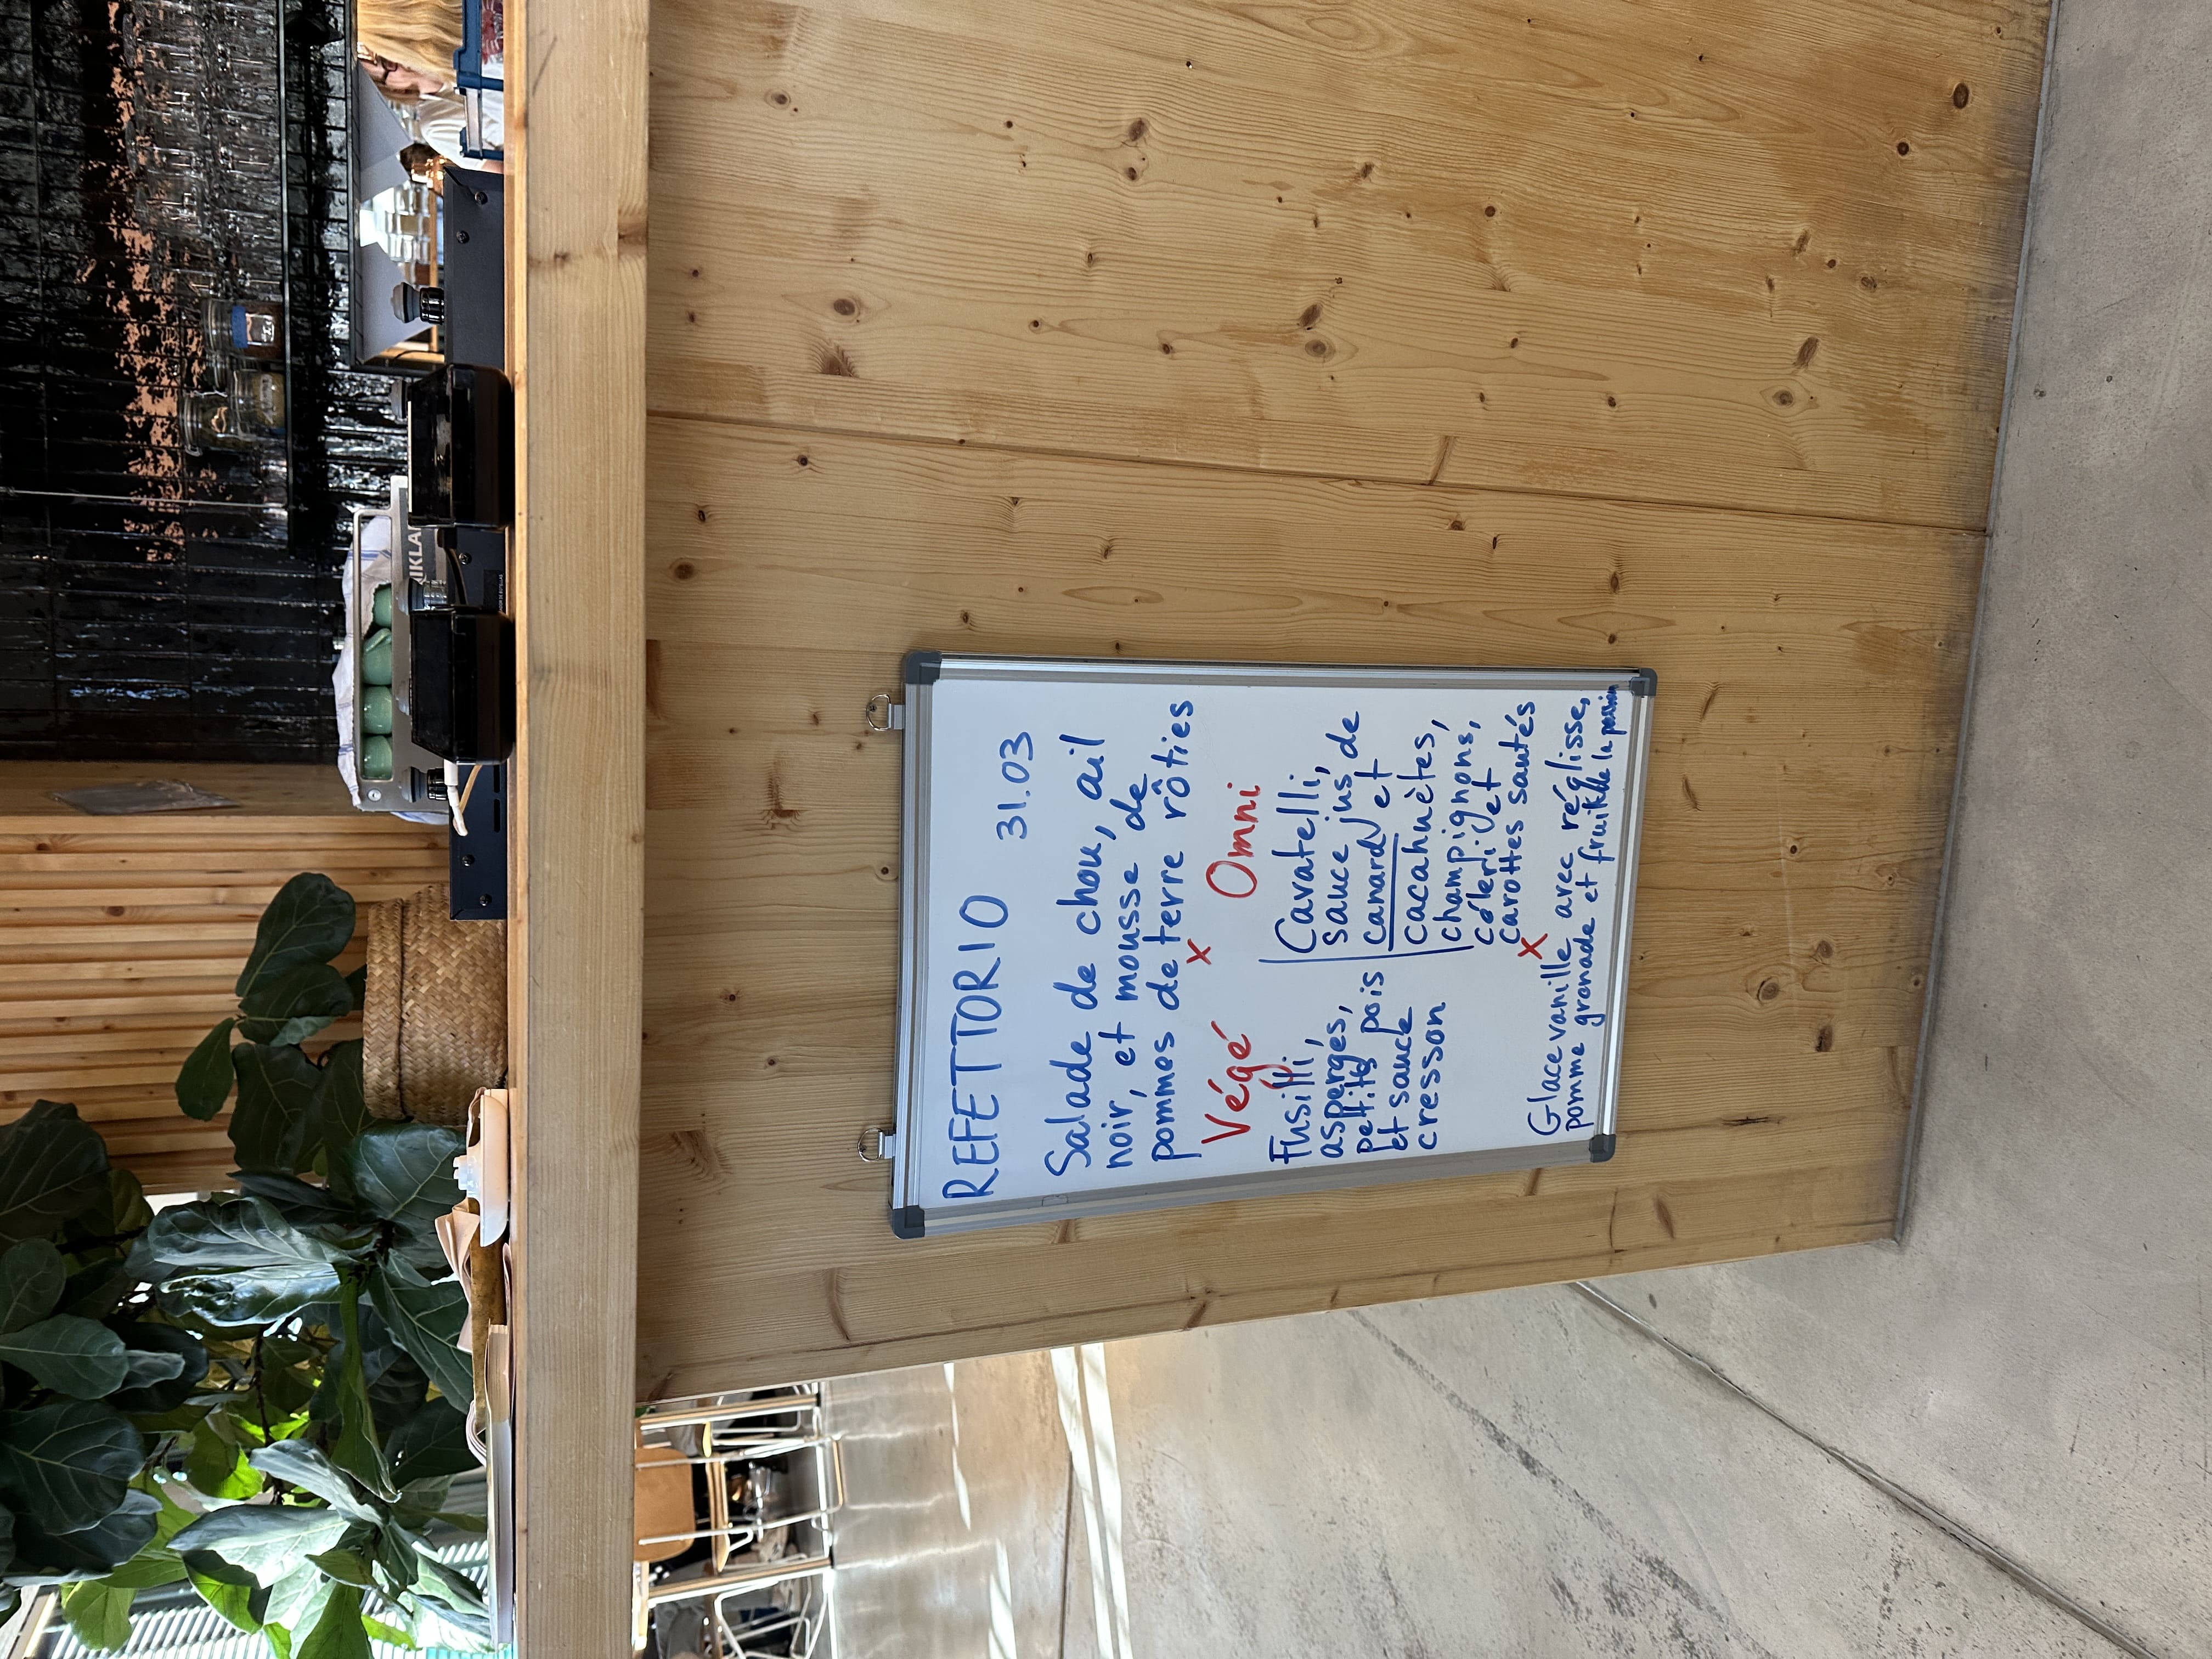 REFETTORIO 31.03
Salade de chou, ail
noir, et mousse de
pommes de terre rôties
x
Végé
Fusilli,
asperges,
petits pois
et sauce
cresson
Omni
Cavatelli,
sauce jus de
canard et
cacahuètes,
champignons,
céleri et
carottes sautés
x
Glace vanille avec réglisse,
pomme grenade et fruit de la passion